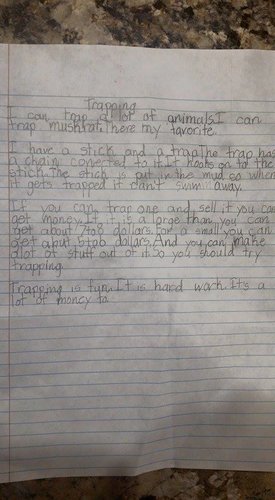 Trapping
I can trap a lot of animals.I can
trap mushrat.There my favorite.
I have a stick and a trap.The trap has
a chain conected to it.It hooks on to the
stick.The stick is put in the mud so when
it gets trapped it can't swimm away.
If you can trap one and sell it you can
get money.If it is a large than you can
get about 7to8 dollars.For a small you can
get about 5to6 dollars.And you can make
alot of stuff out of it.So you should try
trapping.
Trapping is fyn.It is hard work.It's a
lot of money to